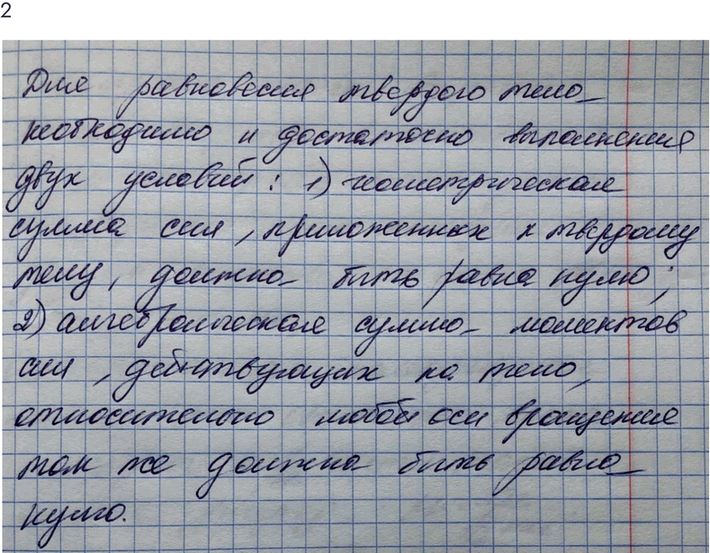 2
Для равновесия твердого тела
необходимо и достаточно выполнения
двух условий: 1) геометрическая
сумма сил, приложенных к твердому
телу, должна быть равна нулю;
2) алгебраическая сумма моментов
сил, действующих на тело,
относительно любой оси вращения
так же должна быть равна
нулю.